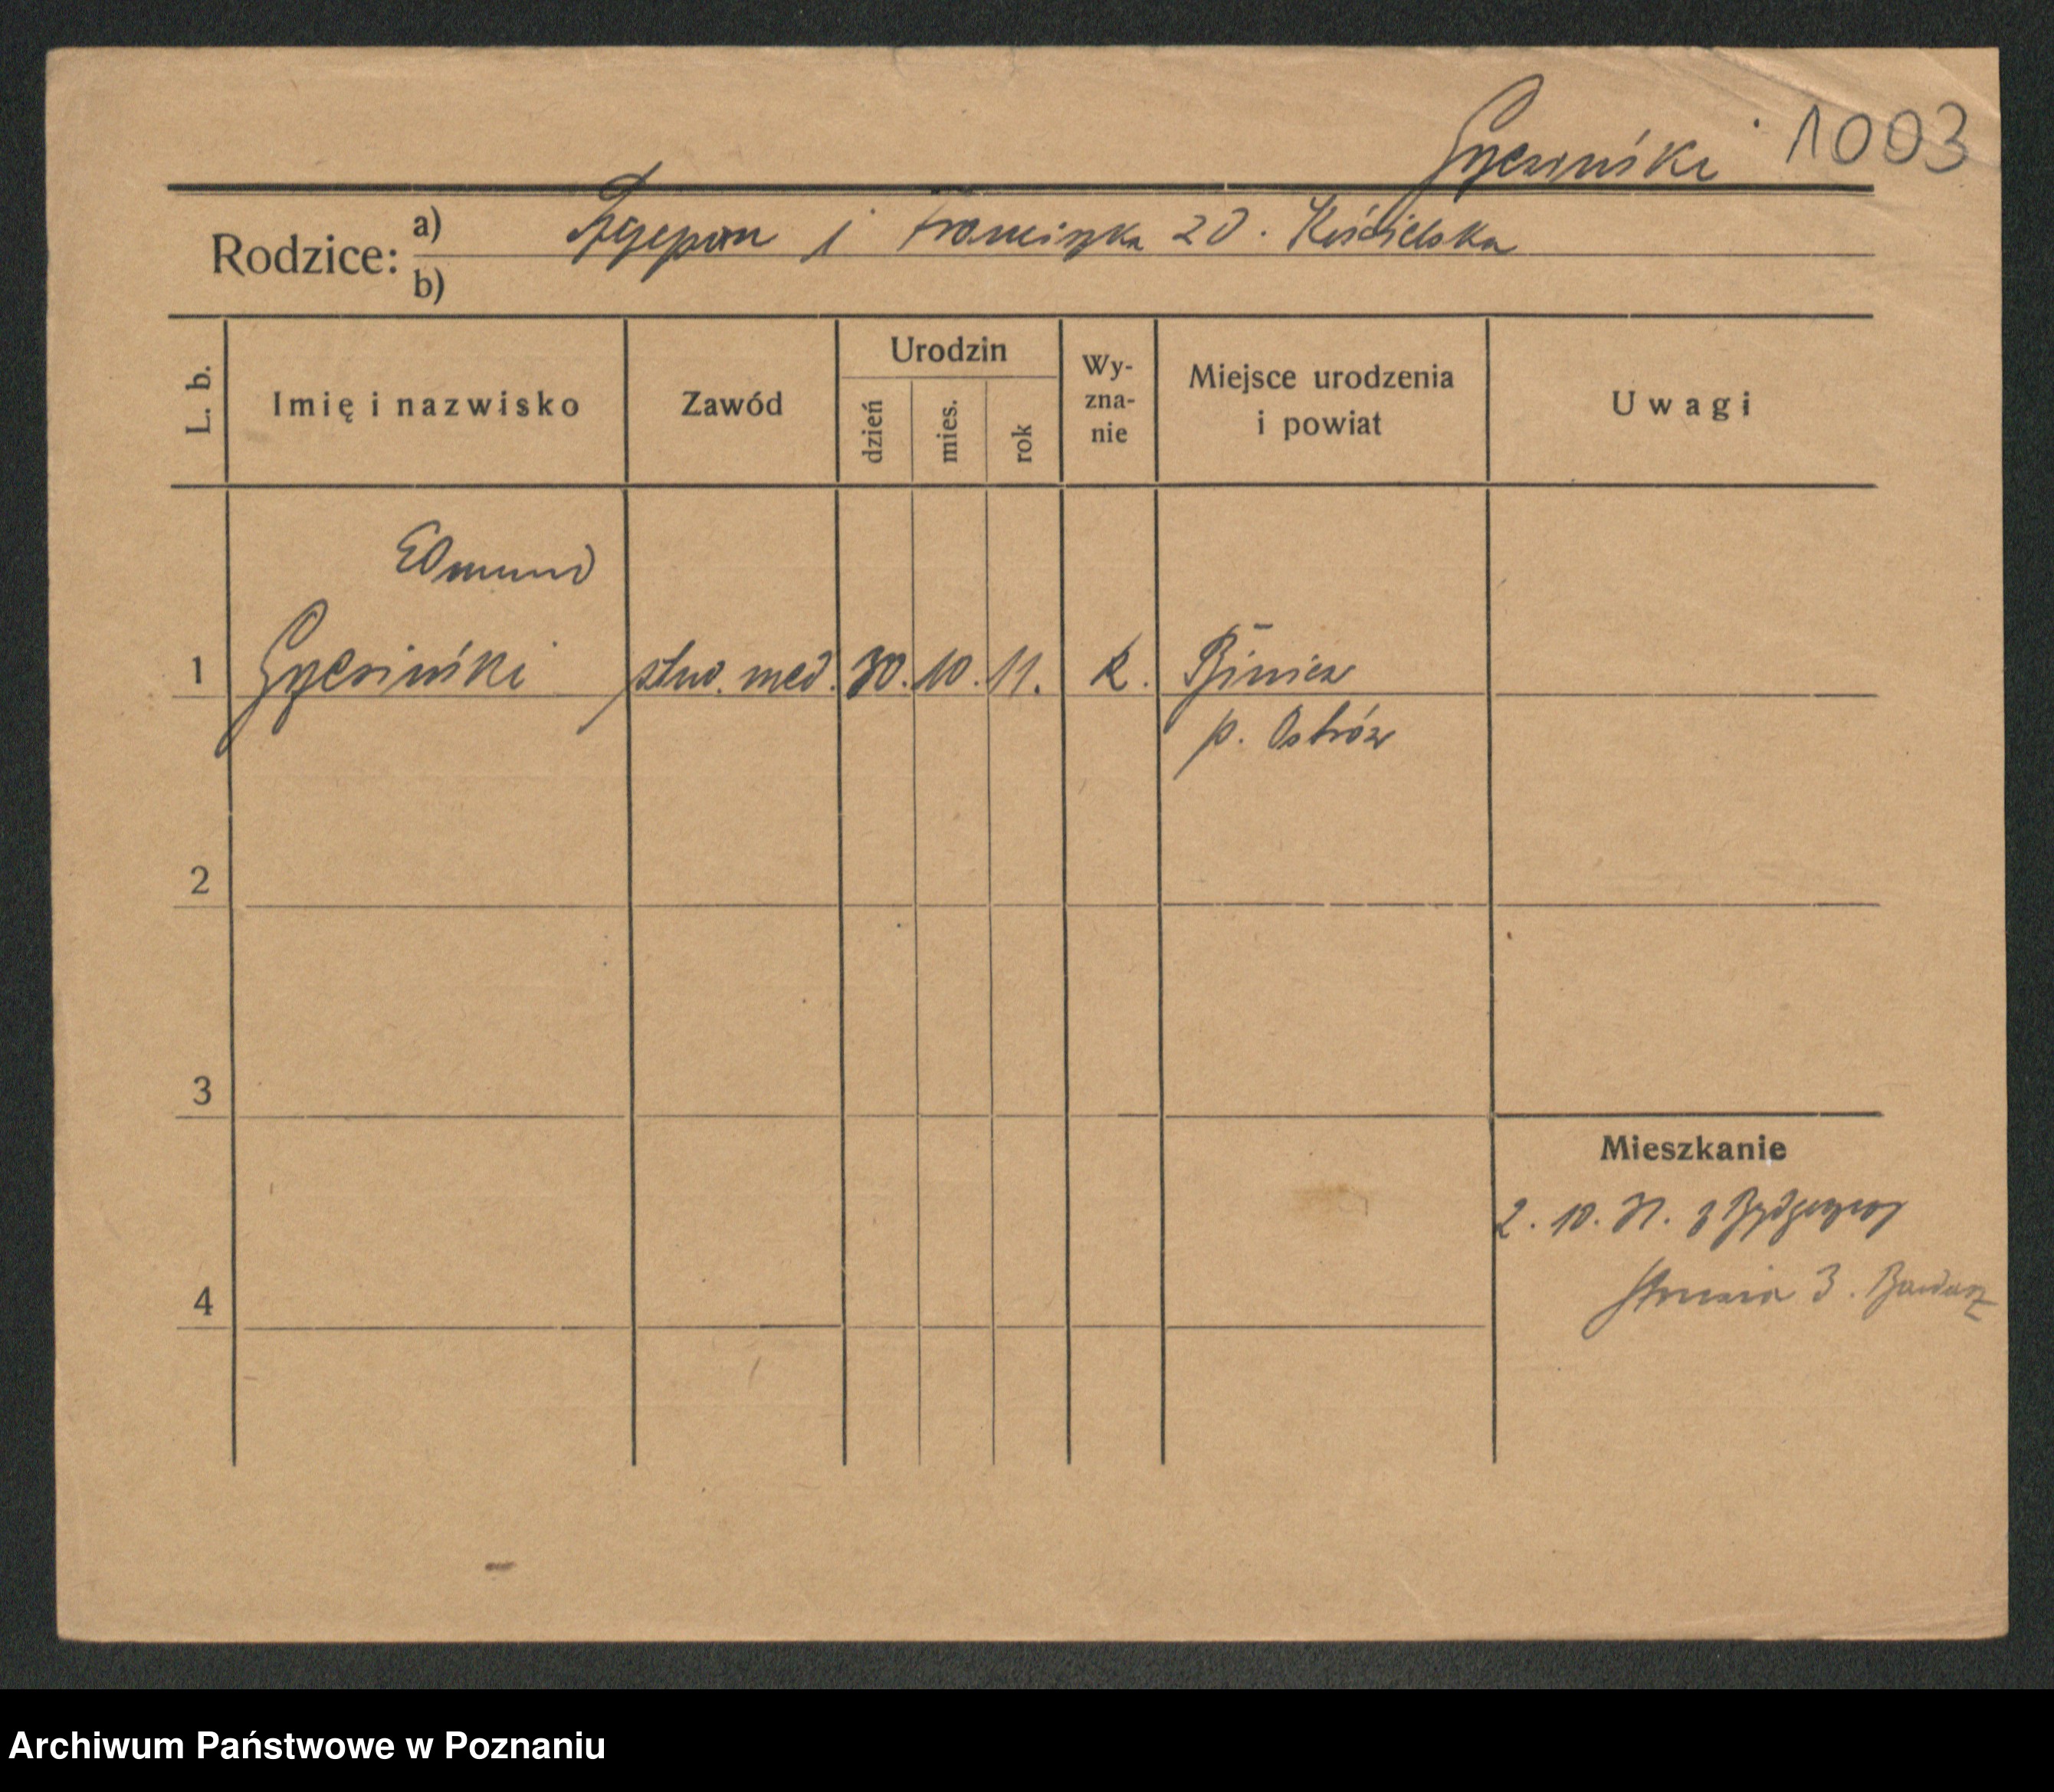 1003
Rodzice: a) Szczepan i Franciszka zd. Kościelska
b)
L. b.
Imię i nazwisko
Zawód
Urodzin
dzień
mies.
rok
Wy-
zna-
nie
Miejsce urodzenia
i powiat
Uwagi
Edmund
1 stud. med. 30. 10. 11. k. Biniew
p. Ostrów
2
3
Mieszkanie
2. 10. 31. z Bydgoszczy
4 3.
Archiwum Państwowe w Poznaniu